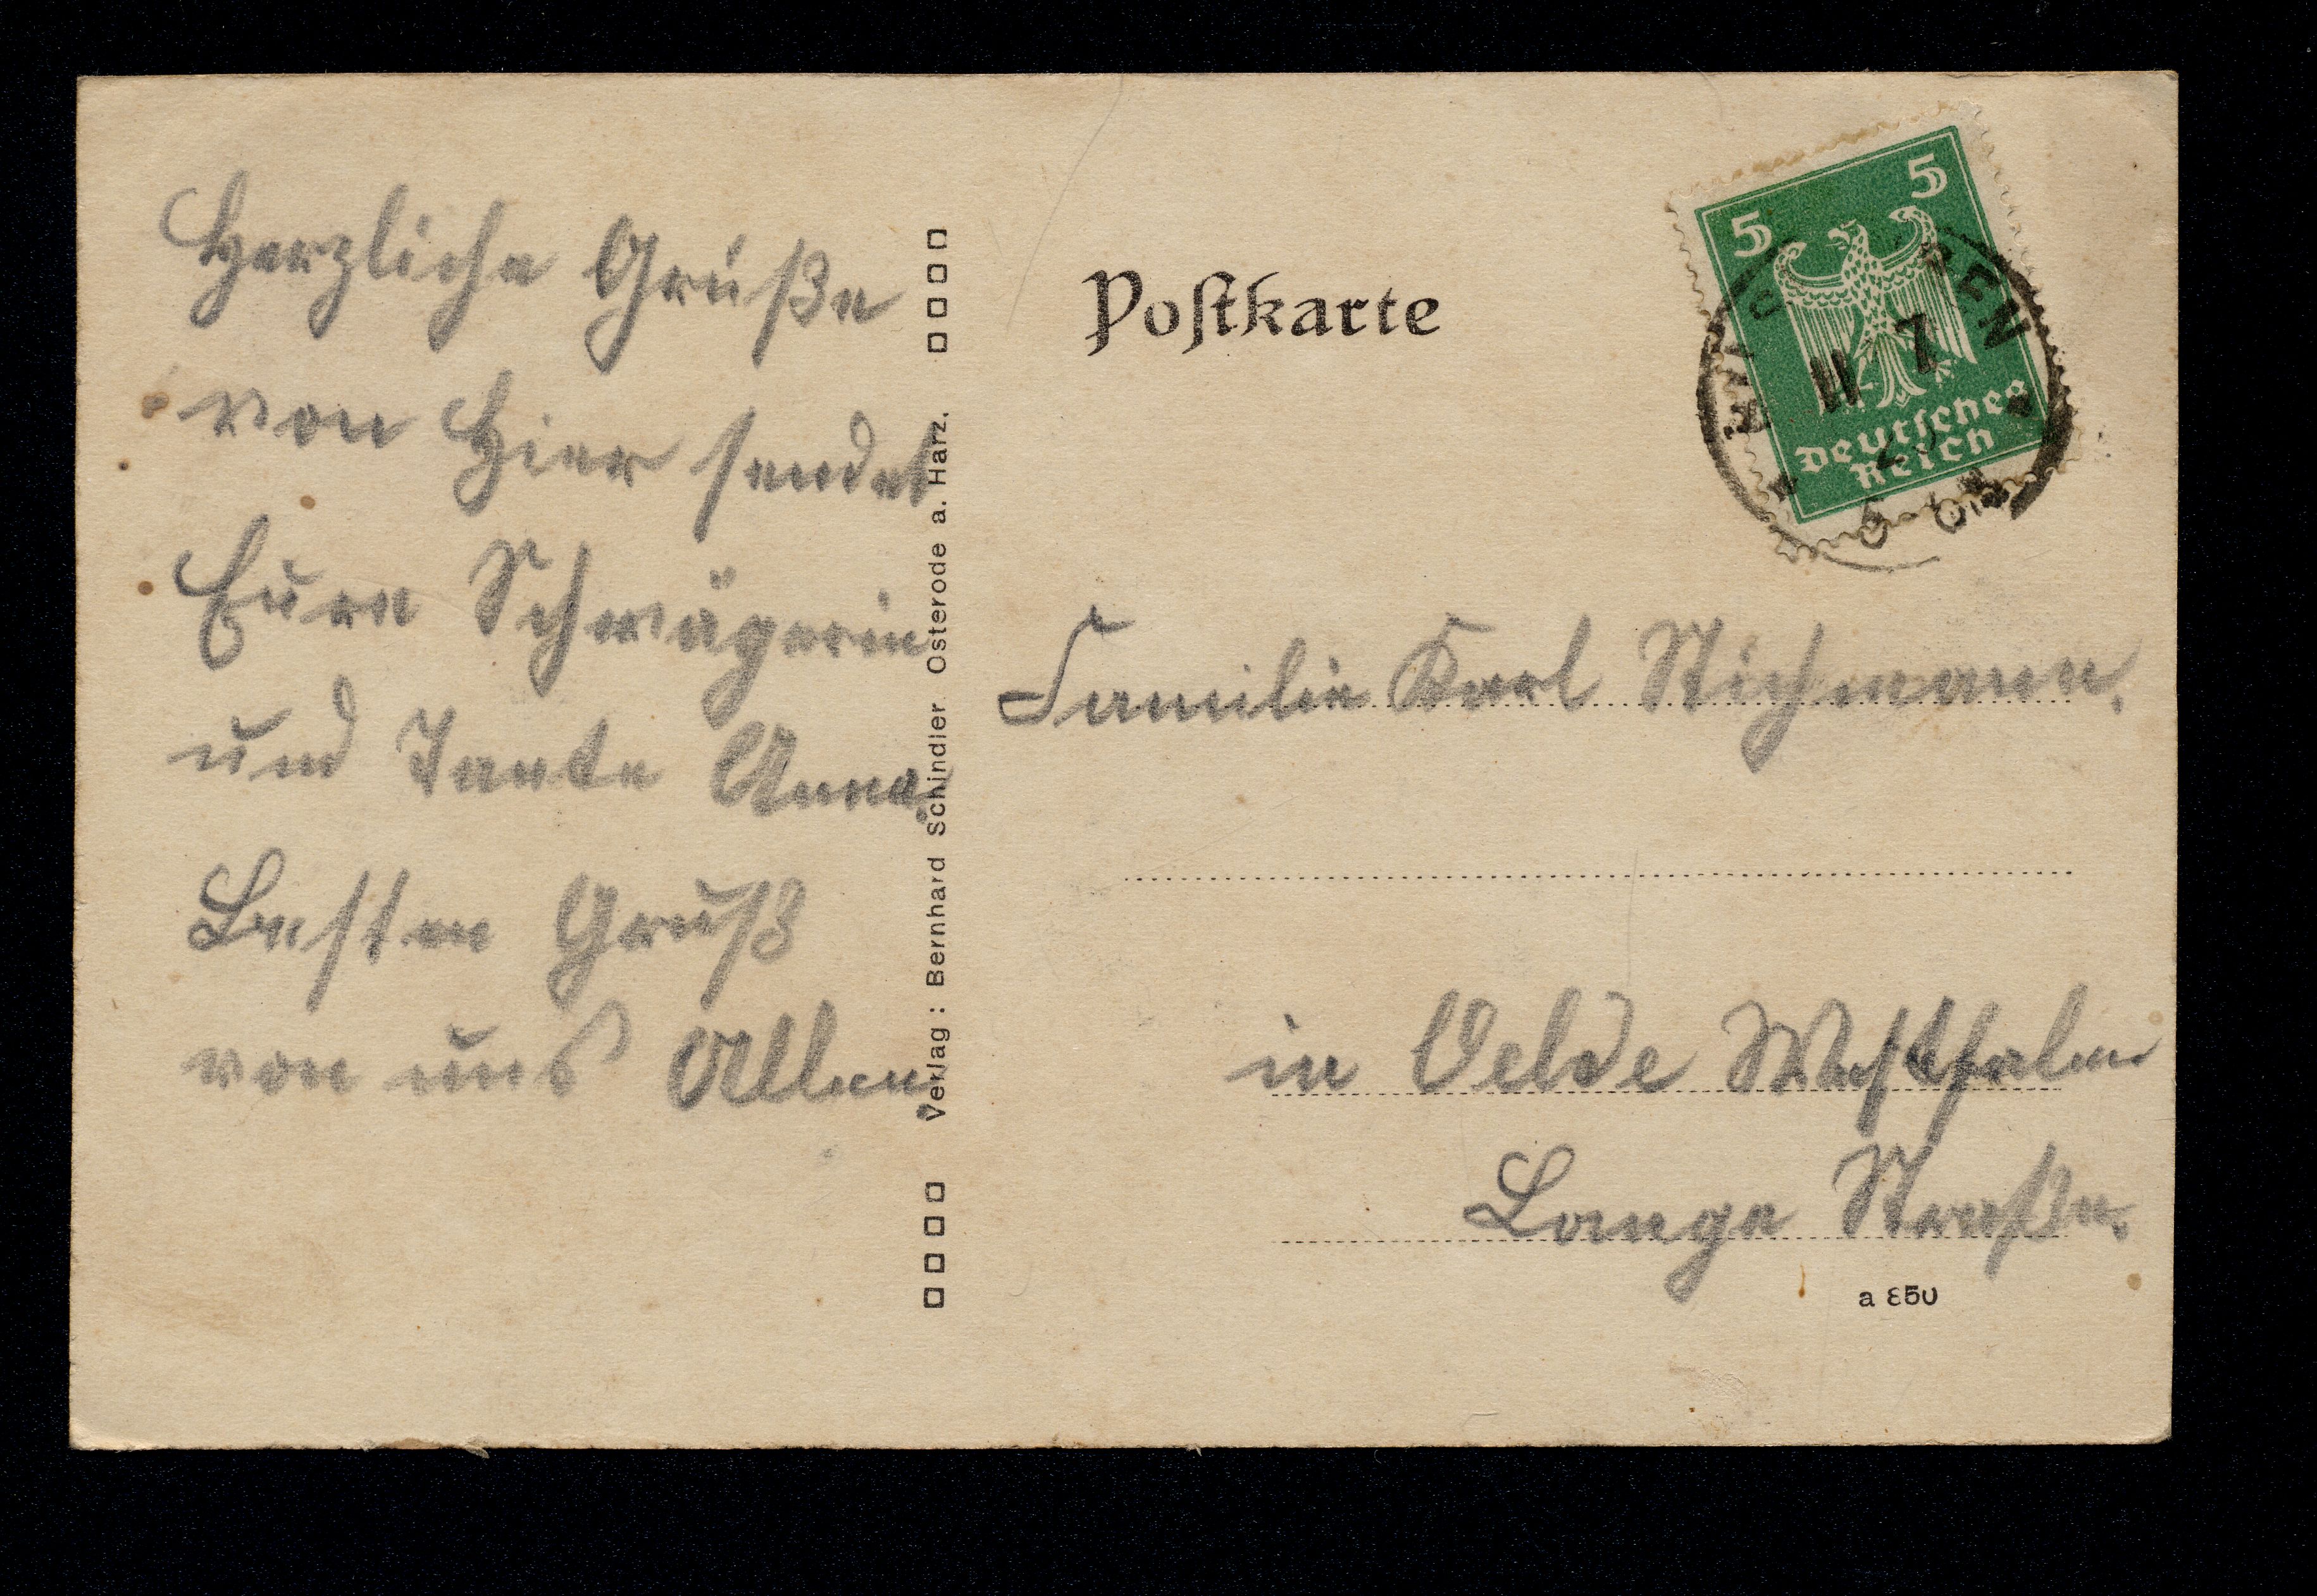 Herzliche Grüße
von Hier sendet
Eure Schwägerin
und Tante Anna.
Besten Gruß
von uns Allen.
Verlag: Bernhard Schindler Osterode a. Harz.
Postkarte
5 5
Deutsches
Reich
11 7
Familie Karl Stichmann.
in Oelde Westfalen
Lange Straße.
a 850